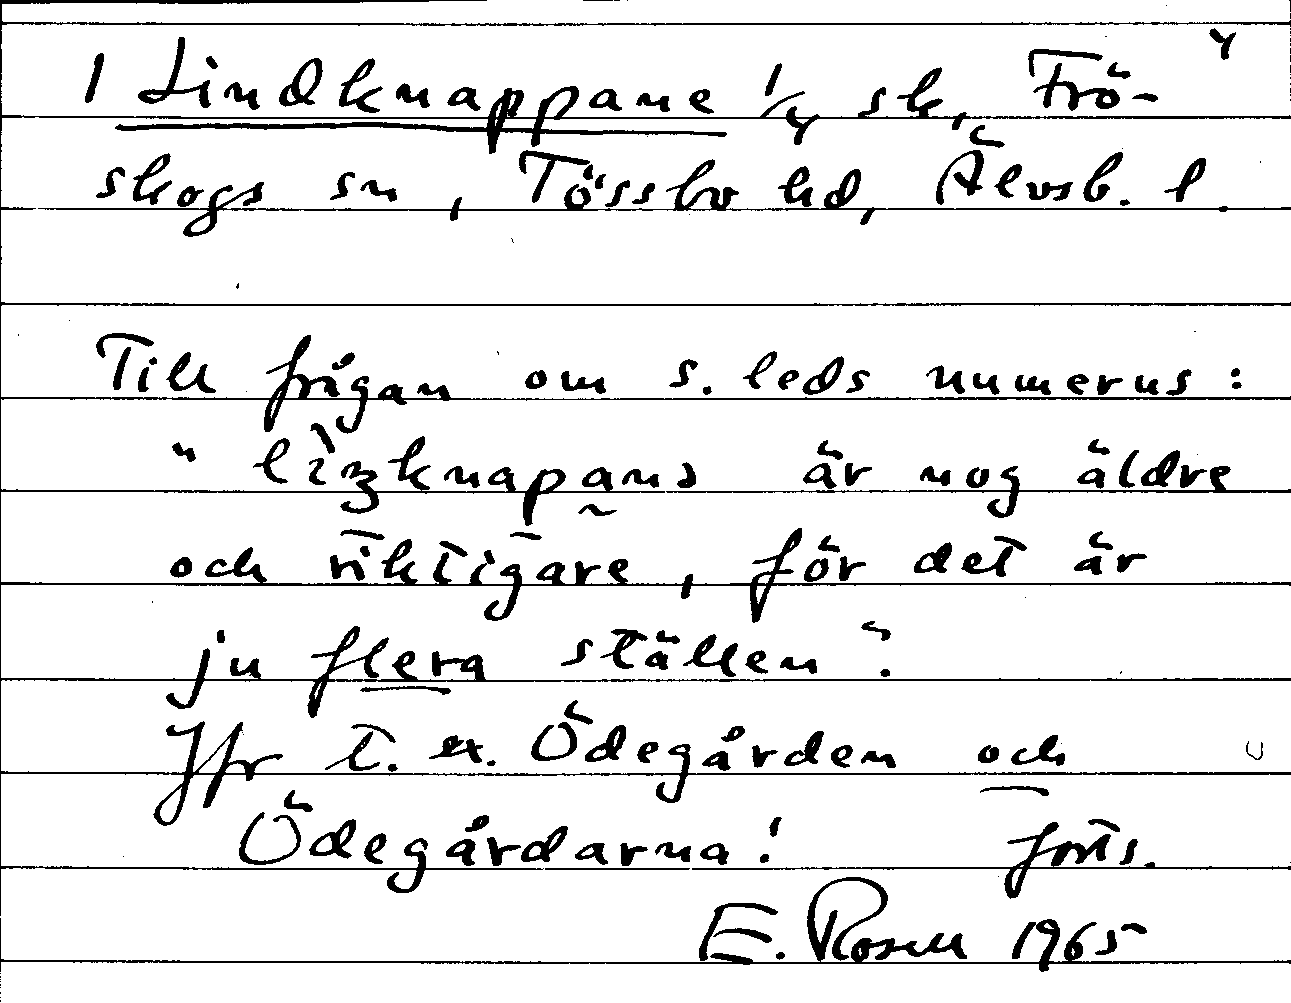 1 Lindknappane 1/4 sk, Frö-
skogs sn, Tössbo hd, Älvsb. l.
Till frågan om s. leds numerus:
"
är nog äldre
och riktigare, för det är
ju flera ställen".
Jfr t. ex. Ödegården och
Ödegårdarna! forts.
E. Rosell 1965